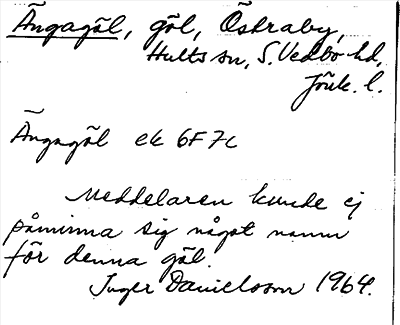 Ängagöl, göl, Östraby,
Hults sn, S. Vedbo hd,
Jönk. l.
Ängagöl ek 6F7c
Meddelaren kunde ej
påminna sig något namn
för denna göl.
Inger Danielsson 1964.